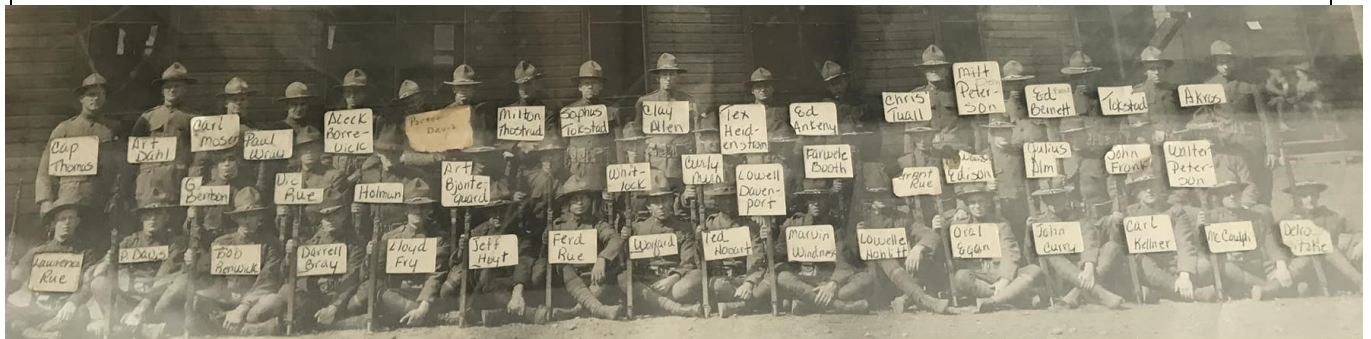 Cap
Thomas
Art
Dahl
Carl
Moser
Paul
Wray
Aleck
Borre-
vick
Porter
David
Milton
Thostrud
Sophus
Tokstad
Clay
Allen
Tex
Heid-
enstrom
Ed
Ankeny
Chris
Tuall
Milt
Peter-
son
Ed
Bennett
Tokstad
Akros
G
Benson
Vic
Rue
Holman
Art
Bjonte-
guard
Whit-
lock
Curly
Lowell
Daven-
port
Farwele
Booth
Grant
Rue
Edison
Julius
Alm
John
Frank
Walter
Peter-
son
Lawrence
Rue
P. Davis
Bob
Renwick
Darrell
Bray
Lloyd
Fry
Jeff
Hoyt
Ferd
Rue
Ted
Hobart
Marvin
Windness
Lowelle
Oral
Egan
John
Curry
Carl
Kellner